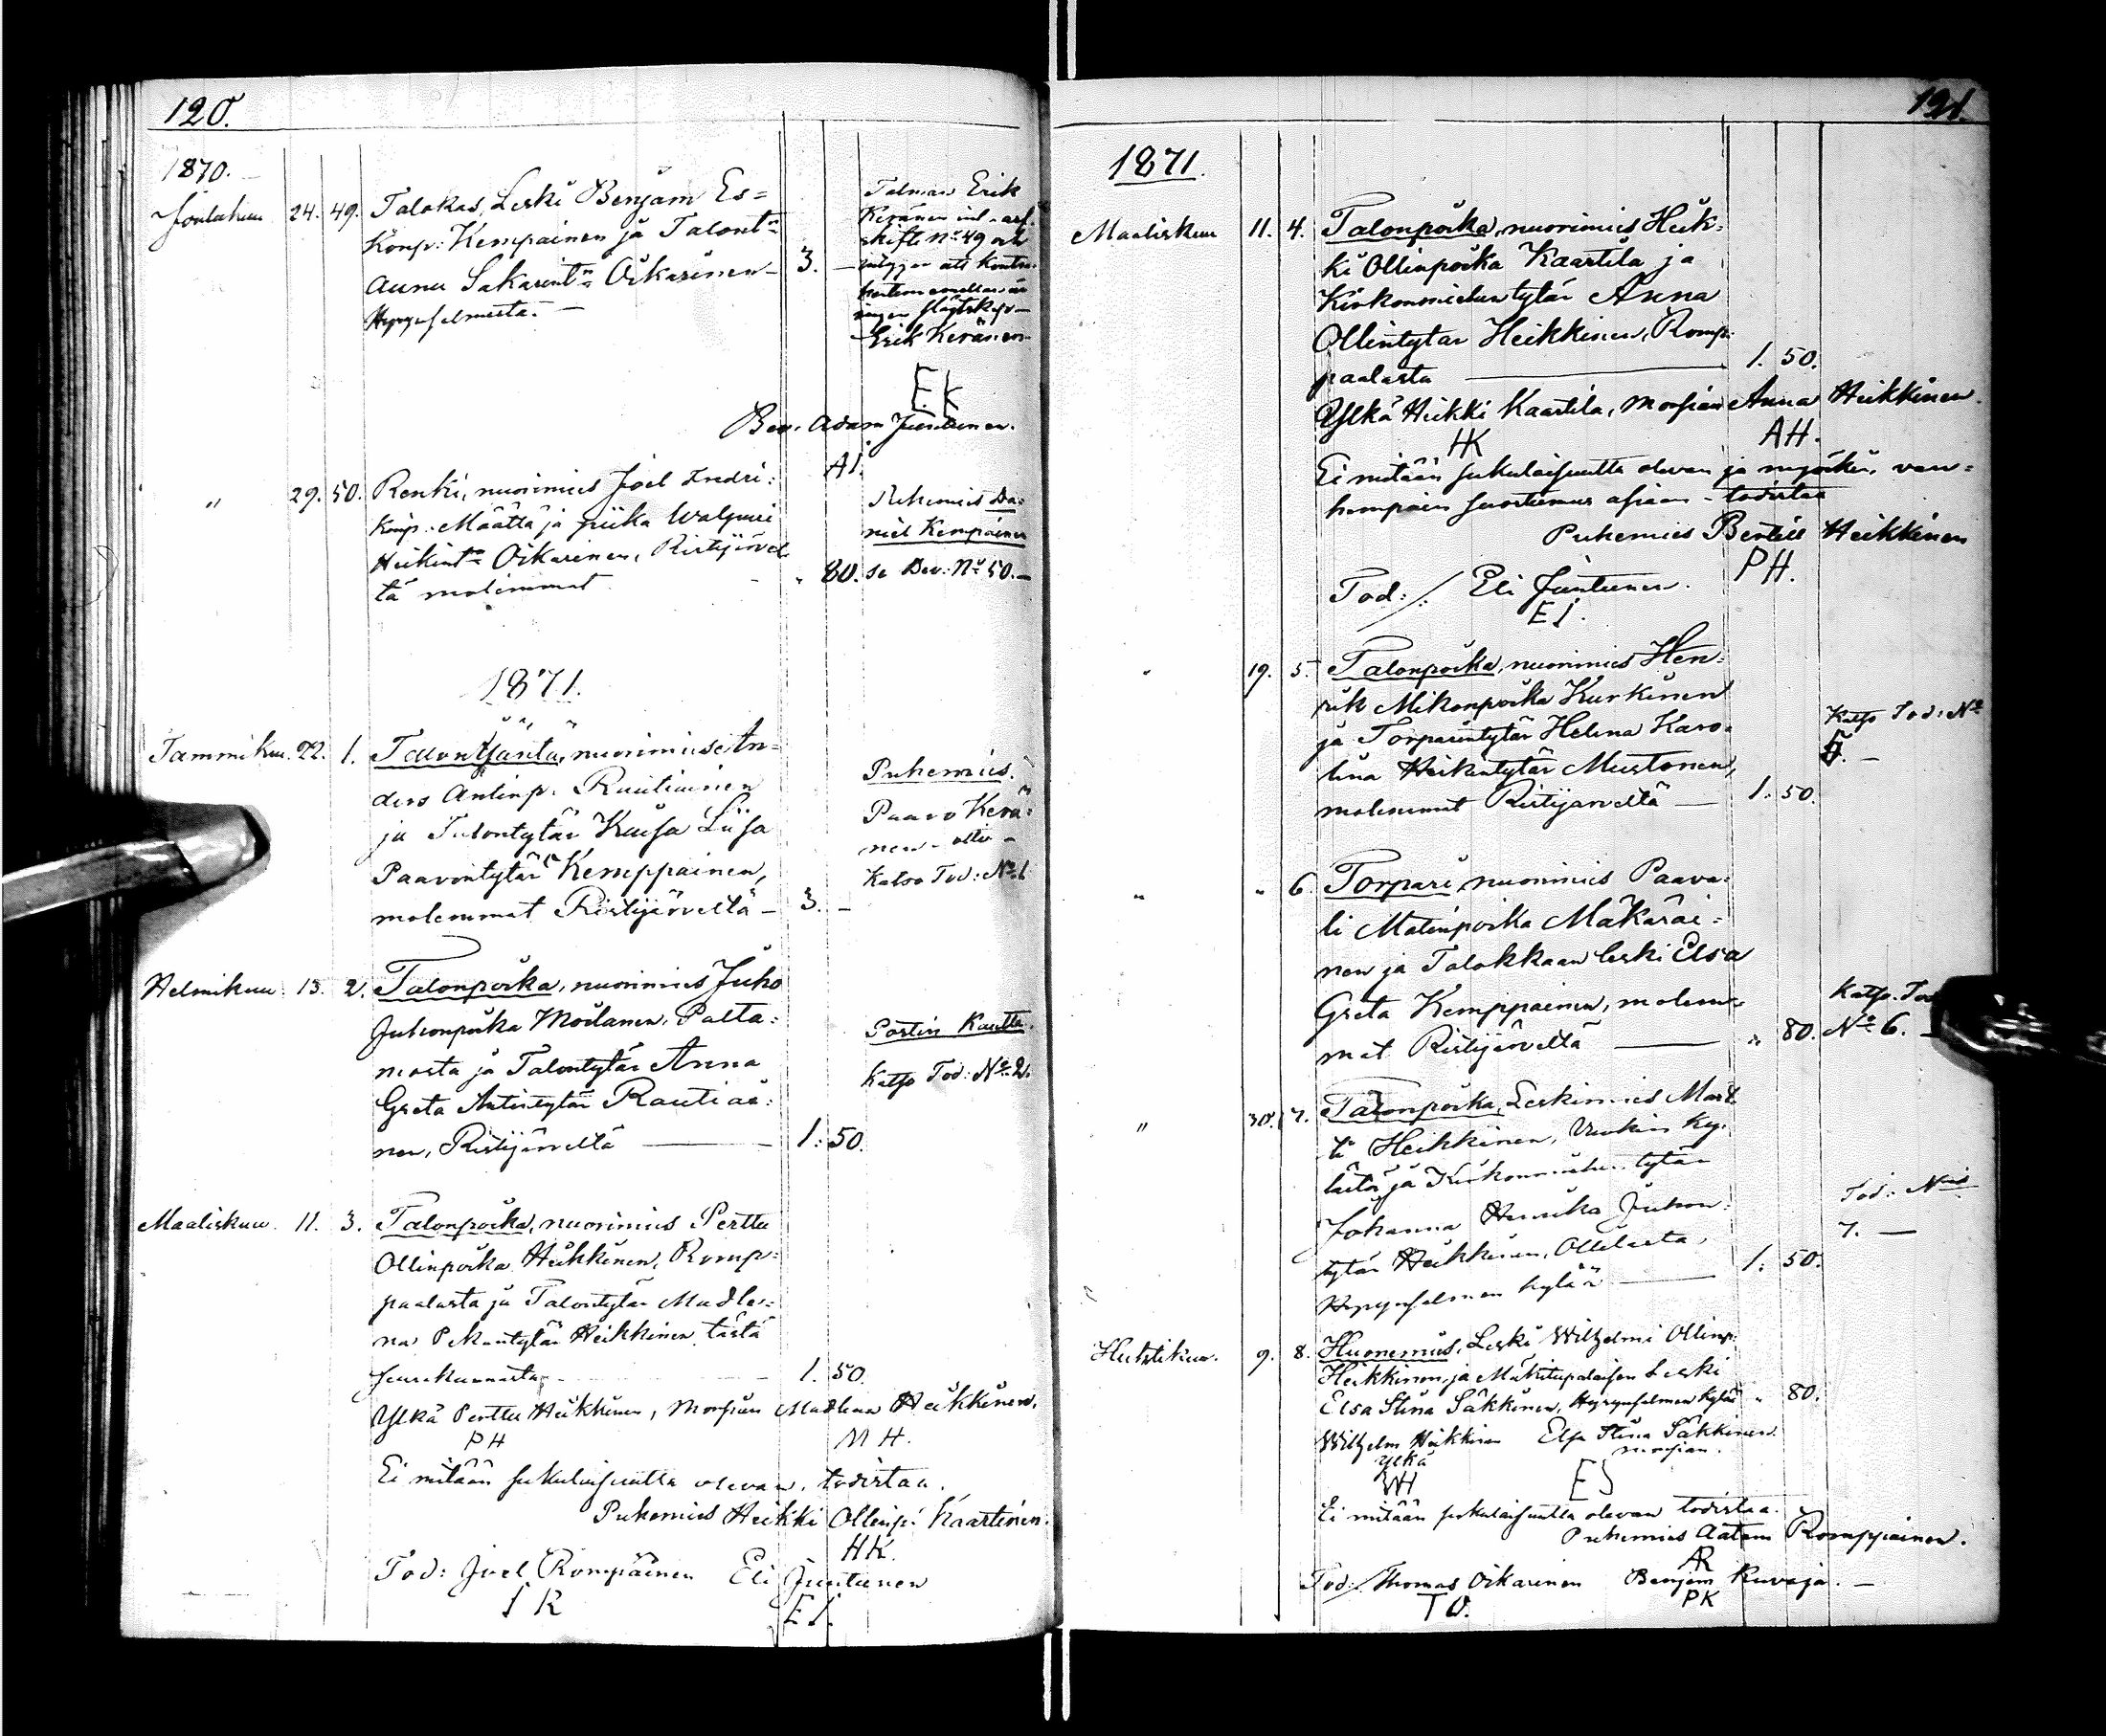 120.
1870.
Joulukuu 24. 49. Talokas, Leski Benjam Es=
Konp: Kempainen ja Talont:
Aunu Sakarint: Oikarinen 3. —
Hyrynsalmelta. —
Talman Erik
Keränen
skifte No 49 och
intygar att
Erik Keränen
EK
Bev. Adam Juntunen.
AI.
" 29. 50. Renki, nuorimies Joel Indri:
konp: Määttä ja piika Walpuri
Heikint: Oikarinen, Ristijärvel
tä molemmat " 80.
Puhemies Da:
niel Kempainen
se Bev: No 50. —
1871.
Tammikuu. 22. 1. Talon Isäntä, nuorimies An=
ders Antinp. Rautiainen
ja Talontytär Kaisa Liisa
Paavontytär Kemppainen,
molemmat Ristijärveltä — 3. —
Puhemies.
Paavo Kerä:
nen - otti -
Katso Tod: No 1
Helmikuu 13. 2. Talonpoika, nuorimies Juho
Juhonpoika Moilanen, Palta:
mosta ja Talontytär Anna
Greta Antintytär Rautiai:
nen, Ristijärveltä — 1: 50.
Postin Kautta.
Katso Tod: No 2.
Maaliskuu. 11. 3. Talonpoika, nuorimies Perttu
Ollinpoika Heikkinen, Romp=
paalasta ja Talontytär Madle:
na Pekantytär Heikkinen tästä
seurakunnasta 1. 50.
Ylkä Perttu Heikkinen, Morsian Madlena Heikkinen.
PH MH.
Ei mitään sukulaisuutta olevan, todistaa.
Puhemies Heikki Ollinp: Kaartinen.
HK.
Tod: Joel Rompäinen Eli Juntunen
IR EI.
121.
1871.
Maaliskuu 11. 4. Talonpoika, nuorimies Heik=
ki Ollinpoika Kaartila ja
Kirkonmiehen tytär Anna
Ollintytär Heikkinen, Romp:
paalasta — 1. 50.
Ylkä Heikki Kaartila, Morsian Anna Heikkinen.
HK AH.
Ei mitään sukulaisuutta olevan ja myöskin, van=
hempain suostumus asiaan - todistaa
Puhemies Bertill Heikkinen
PH.
Tod: /: Eli Juntunen.
EI.
" 19. 5. Talonpoika, nuorimies Hen=
rik Mikonpoika Kurkinen
ja Torparintytär Helena Karo:
lina Heikintytär Mustonen,
molemmat Ristijärveltä — 1. 50.
Katso Tod: No
5. —
" " 6. Torpari nuorimies Paava:
li Matinpoika Mäkäräi=
nen ja Talokkaan leski Elsa
Greta Kemppainen, molem=
mat Ristijärveltä — " 80.
Katso. To
No 6. —
" 30. 7. Talonpoika, Leskimies Mart
ti Heikkinen, Uvakin ky:
lästä ja Kirkonmiehen tytär
Johanna Henrika Juhon:
tytär Heikkinen, Ollilasta,
Hyrynsalmen kylää — 1. 50.
Tod: No
7. —
Huhtikuu. 9. 8. Huonemies, Leski Wilhelmi Ollinp:
Heikkinen, ja Mäkitupalaisen Leski
Elsa Stina Säkkinen, Hyrynsalmen kylää " 80.
Wilhelm Heikkinen Elsa Stina Säkkinen.
Ylkä morsian.
WH ES
Ei mitään sukulaisuutta olevan todistaa.
Puhemies Aatam Romppainen.
AR
Tod: /: Thomas Oikarinen Benjam Kuvaja. —
TO. PK